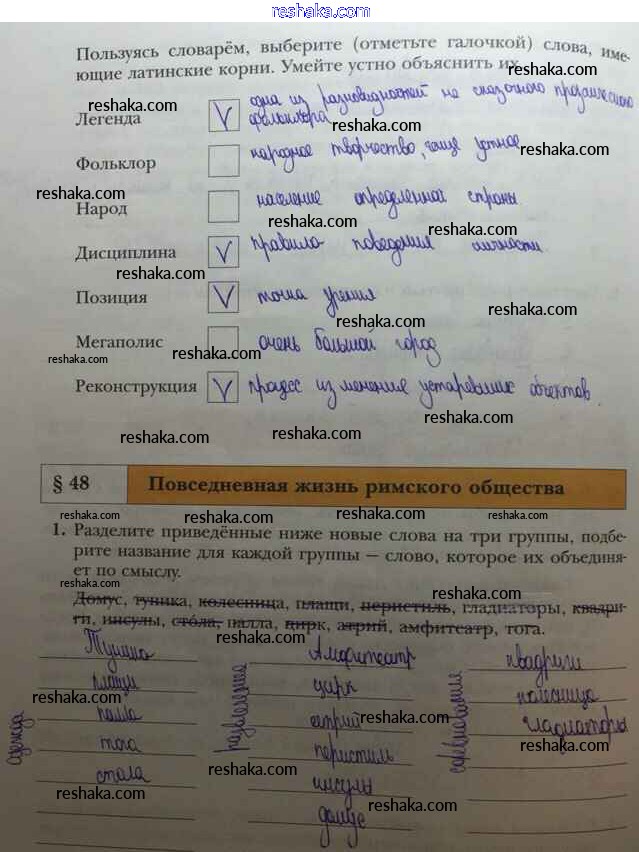 www.reshaka.com
reshaka.com
Пользуясь словарём, выберите (отметьте галочкой) слова, име-
ющие латинские корни. Умейте устно объяснить их
reshaka.com
reshaka.com
одна из разновидностей не сказочного прозаического
Легенда V фольклора
reshaka.com
Фольклор народное творчество, чаще устное
reshaka.com
reshaka.com
Народ население определенной страны
reshaka.com
Дисциплина V правила поведения личности
reshaka.com
Позиция V точка зрения
reshaka.com
Мегаполис очень большой город
reshaka.com
reshaka.com
Реконструкция V процесс изменения устаревших объектов
reshaka.com
reshaka.com
reshaka.com
§ 48 Повседневная жизнь римского общества
reshaka.com
reshaka.com
reshaka.com
1. Разделите приведённые ниже новые слова на три группы, подбе-
рите название для каждой группы — слово, которое их объединя-
ет по смыслу.
reshaka.com
Домус, туника, колесница, плащи, перистиль, гладиаторы, квадри-
ги, инсулы, сто́ла, палла, цирк, атрий, амфитеатр, тога.
reshaka.com
reshaka.com
Одежда
Туника
плащи
палла
тога
стола
развлечение
Амфитеатр
цирк
атрий
перистиль
инсулы
домус
соревнования
квадриги
колесница
гладиаторы
reshaka.com
reshaka.com
reshaka.com
reshaka.com
reshaka.com
reshaka.com
reshaka.com
reshaka.com
www.reshaka.com